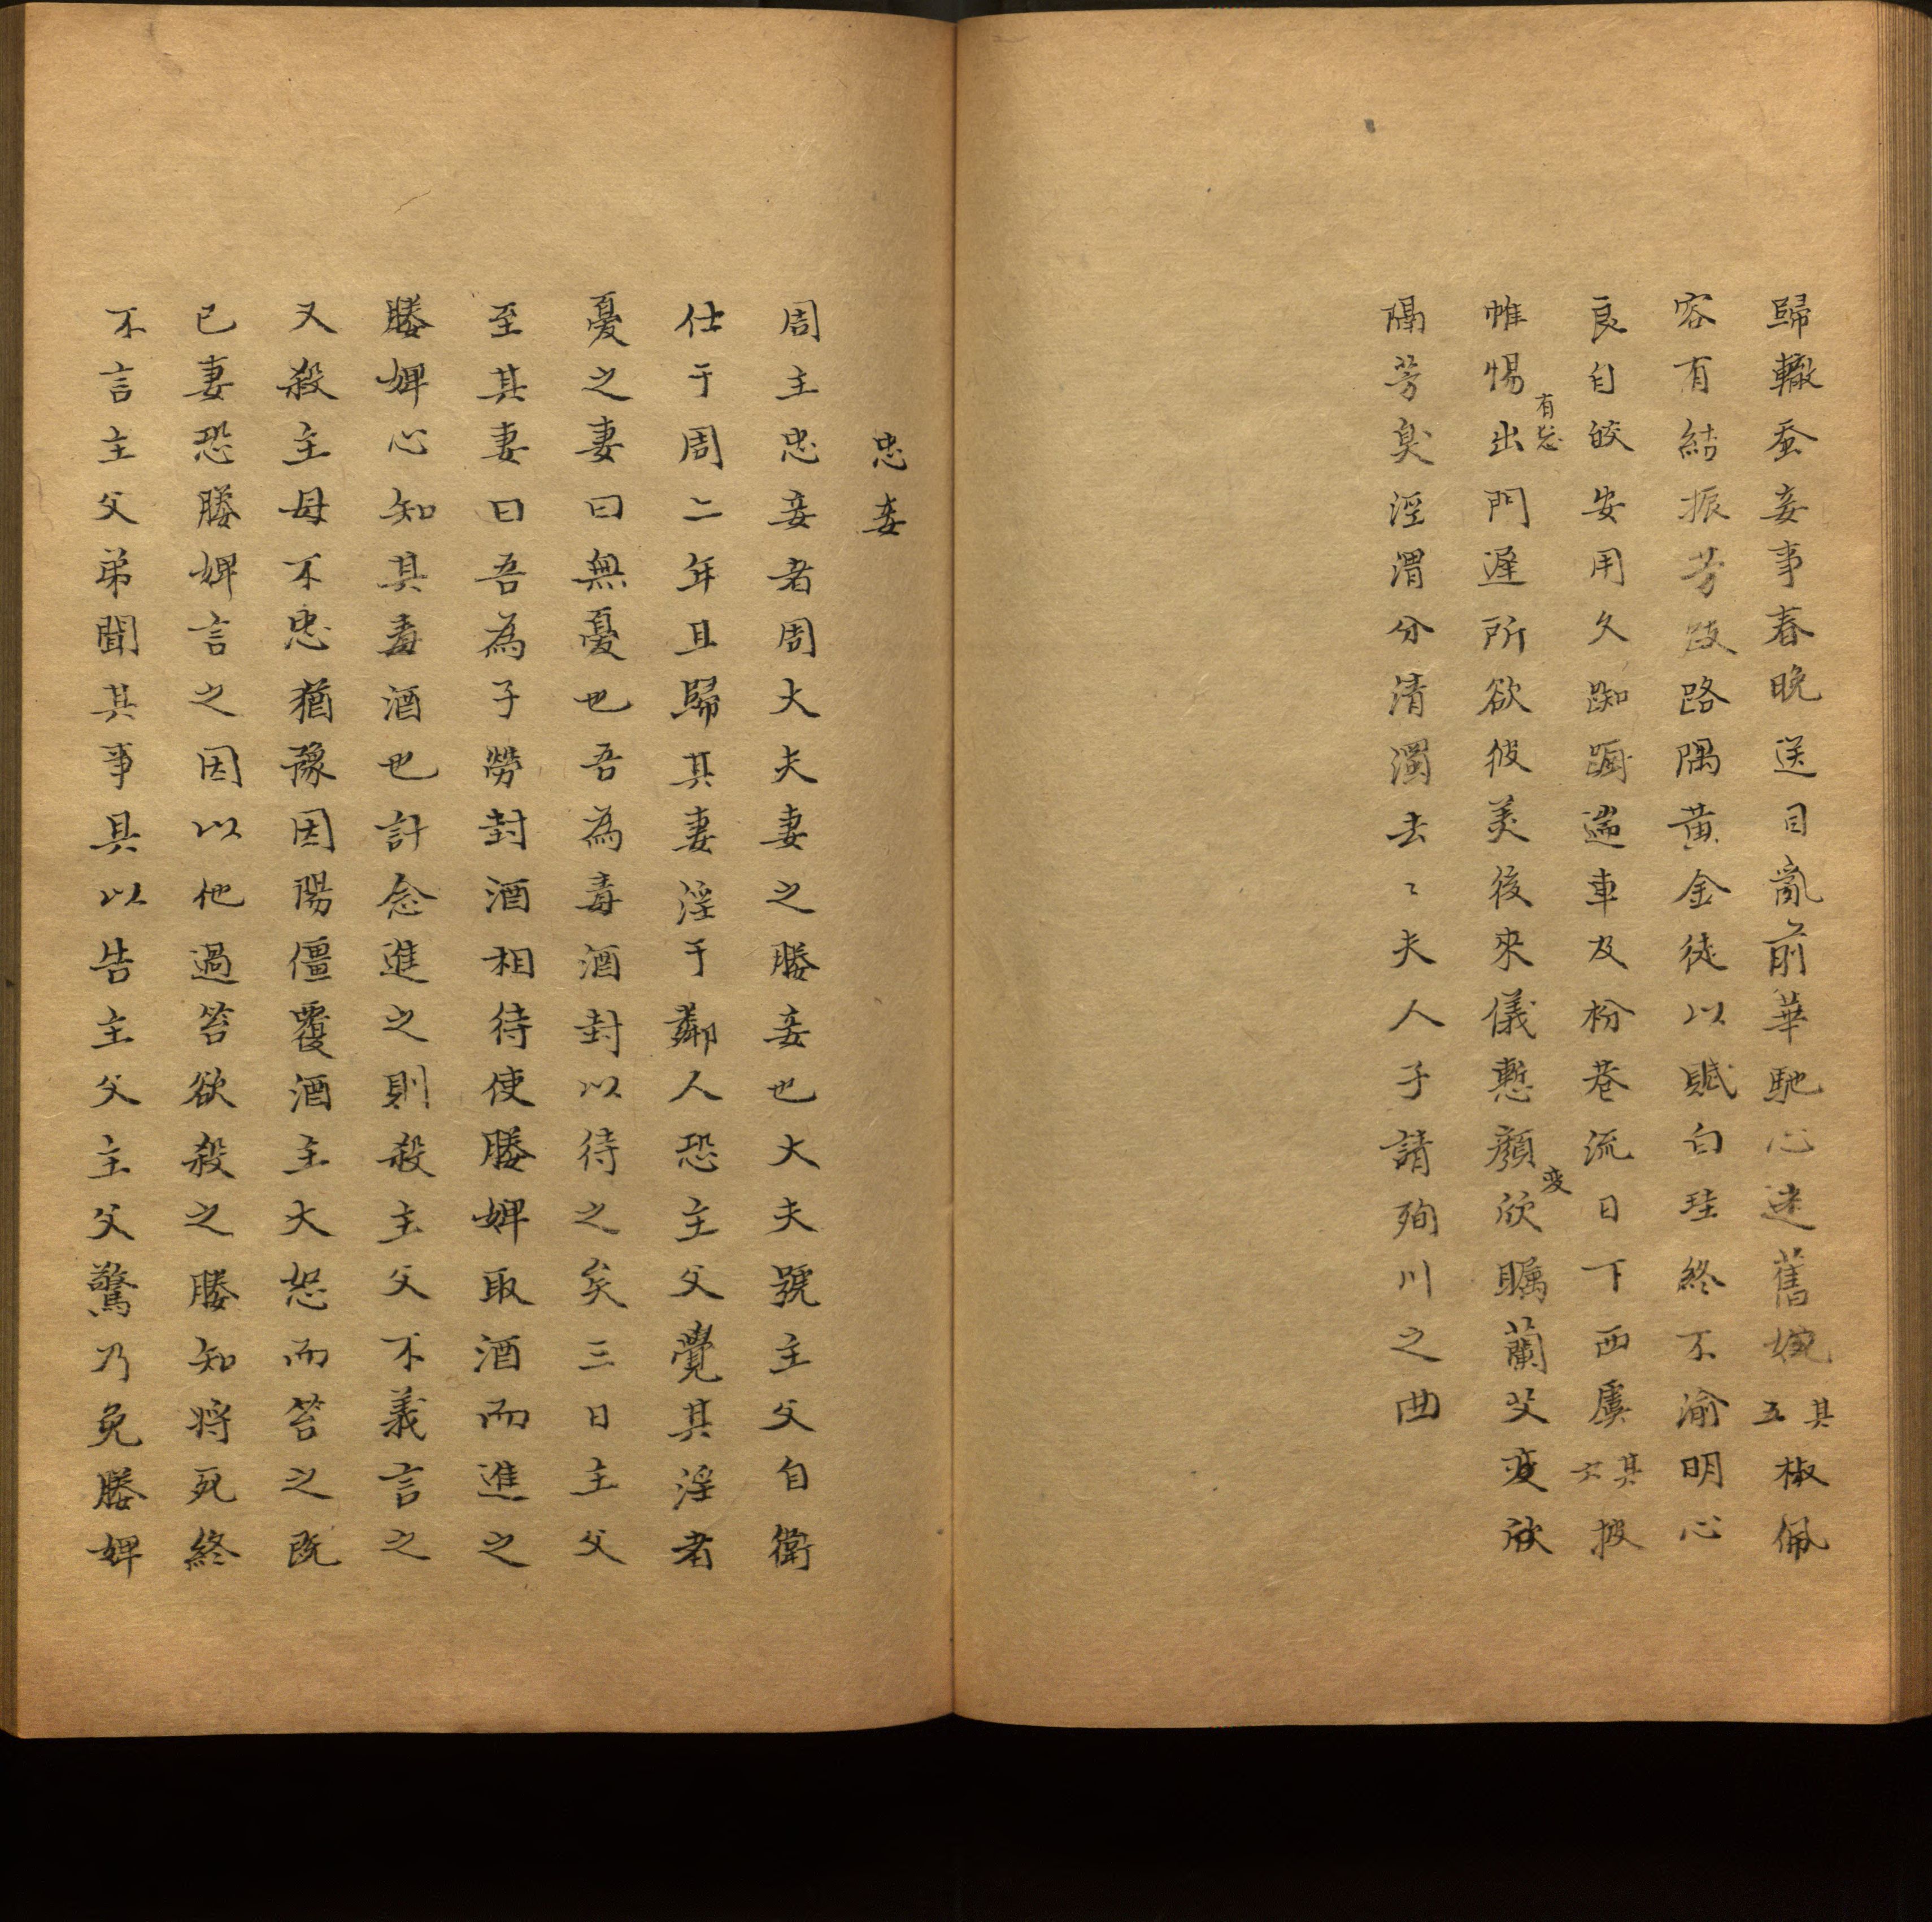 歸轍蚕妾事春晚送目亂前華馳心迷舊婉其五椒佩
容有結振芳跂路隅黃金徒以賦白珪終不渝明心
良自皎安用久踟躕遄車及枌巷流日下西虞其六披
帷惕出門遲所欲彼美後來儀慙顏欣矚蘭艾変欣
有忘
変
隔芳臭涇渭分清濁去〻夫人子請殉川之曲
忠妾
周主忠妾者周大夫妻之媵妾也大夫號主父自衛
仕于周二年且歸其妻淫于鄰人恐主父覺其淫者
憂之妻曰無憂也吾為毒酒封以待之矣三日主父
至其妻曰吾為子勞封酒相待使媵婢取酒而進之
媵婢心知其毒酒也計念進之則殺主父不義言之
又殺主母不忠猶豫因陽僵覆酒主大怒而笞之既
已妻恐媵婢言之因以他過笞欲殺之媵知將死終
不言主父弟聞其事具以告主父主父驚乃免媵婢